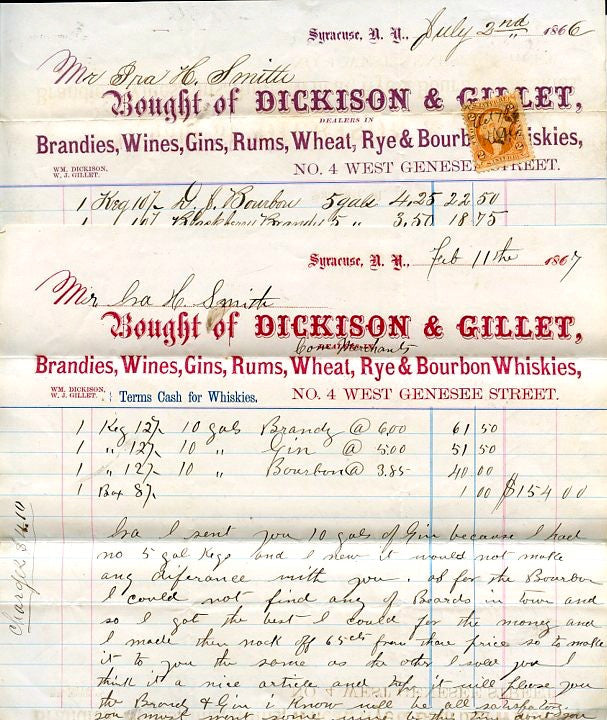 Syracuse, N. Y., July 2nd 1866
Mr Ira H. Smith
Bought of DICKISON & GILLET,
DEALERS IN
Brandies, Wines, Gins, Rums, Wheat, Rye & Bourbon Whiskies,
WM. DICKISON,
W. J. GILLET.
NO. 4 WEST GENESEE STREET.
1 Keg 10/- Bourbon 5 gals 4,25 22 50
1 " 10/ Blackberry Brandy 5 " 3,50 18 75
Syracuse, N. Y., Feb 11th 1867
Mr Ira H. Smith
Bought of DICKISON & GILLET,
Com Merchants
Brandies, Wines, Gins, Rums, Wheat, Rye & Bourbon Whiskies,
WM. DICKISON,
W. J. GILLET.
Terms Cash for Whiskies.
NO. 4 WEST GENESEE STREET.
1 Keg 12/- 10 gals Brandy @ 6.00 61 50
1 " 12/- 10 " Gin @ 5.00 51 50
1 " 12/- 10 " Bourbon @ 3.85 40 00
1 Box 8/- 1 00 $154 00
Ira I sent you 10 gals of Gin because I had
no 5 gal Kegs and I new it would not make
any diferance with you. as for the Bourbon
I could not find any of Beards in town and
so I got the best I could for the money and
I made them nock off 65 cts from thare price so to make
it to you the same as the other I sold you I
think it a nice article and it will please you
the Brandy & Gin i Know will be all satisfactory
you must want some
Charged